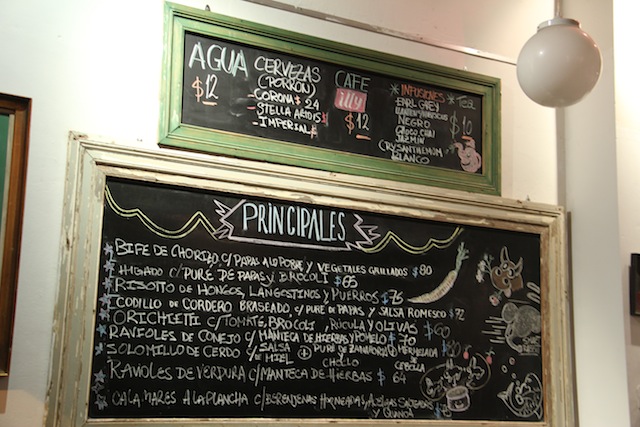 AGUA
$12
CERVEZAS
(PORRÓN)
- CORONA $24
- STELLA ARTOIS
- IMPERIAL
CAFE
illy
$12
* INFUSIONES *
EARL GREY
NEGRO
CHOCO CHAI
JAZMÍN
CRYSANTHEMOM
BLANCO
$10
PRINCIPALES
BIFE DE CHORIZO C/ PAPAS A LO POBRE Y VEGETALES GRILLADOS $80
HIGADO C/ PURE DE PAPAS Y BROCOLI $65
RISOTTO DE HONGOS, LANGOSTINOS Y PUERROS $75
CODILLO DE CORDERO BRASEADO, C/ PURE DE PAPAS Y SALSA ROMESCO $72
ORICHIETI C/ TOMATE, BROCOLI RUCULA Y OLIVAS $60
RAVIOLES DE CONEJO C/ MANTECA DE HIERBAS Y POMELO $70
SOLOMILLO DE CERDO C/ SALSA DE MIEL + PURE DE ZANAHORIA + MERMELADA $80
CEBOLLA
RAVIOLES DE VERDURA C/ MANTECA DE HIERBAS $64
CALAMARES A LA PLANCHA C/ BERENJENAS
Y QUINOA